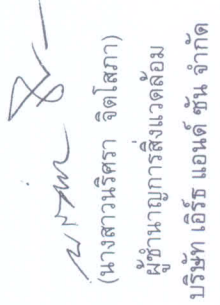 (นางสาวนริศรา จิตโสภา)
ผู้ชำนาญการสิ่งแวดล้อม
บริษัท เอิร์ธ แอนด์ ซัน จำกัด